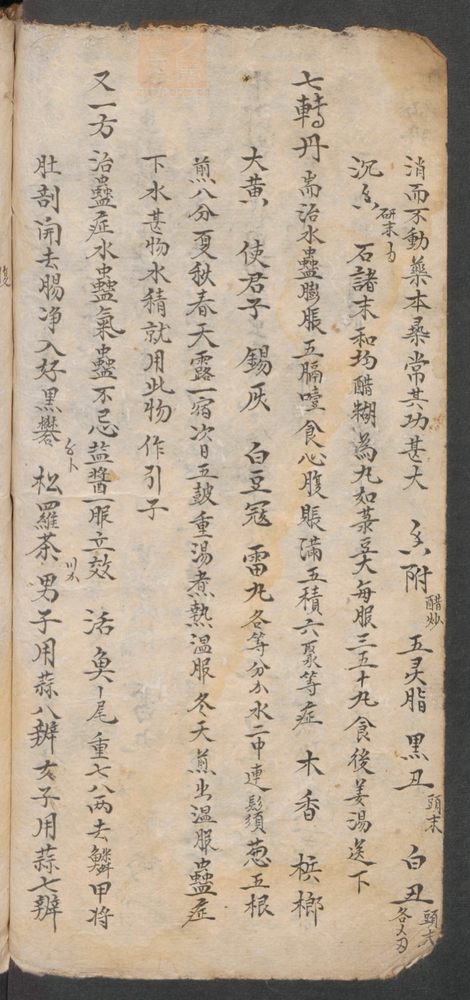 消而不動藥本桑常其功甚大 香附醋炒 五灵脂 黑丑頭末 白丑頭末各
沉香研末 石諸末和均醋糊為丸如菉豆大每服三五十丸食後姜湯送下
七轉丹耑治水蠱膨脹五膈噎食心腹賬滿五積六聚等症 木香 梹榔
大黄 使君子 錫灰 白豆寇 雷丸各等分水二中連鬚葱五根
煎八分夏秋春天露一宿次日五皷重湯煮熱温服冬天煎出温服蠱症
下水甚物水精就用此物作引子
又一方治蠱症水蠱氣蠱不忌盐醬一服立效 活魚一尾重七八两去鱗甲将
肚剖開去腸净入好黑礬 松羅茶 男子用蒜八辧女子用蒜七辧